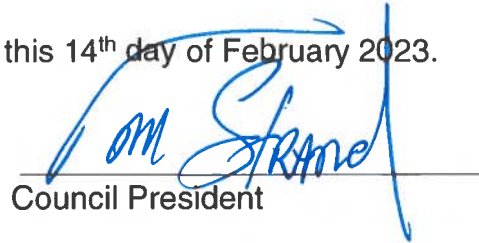 this 14th day of February 2023.
Tom Strand
Council President